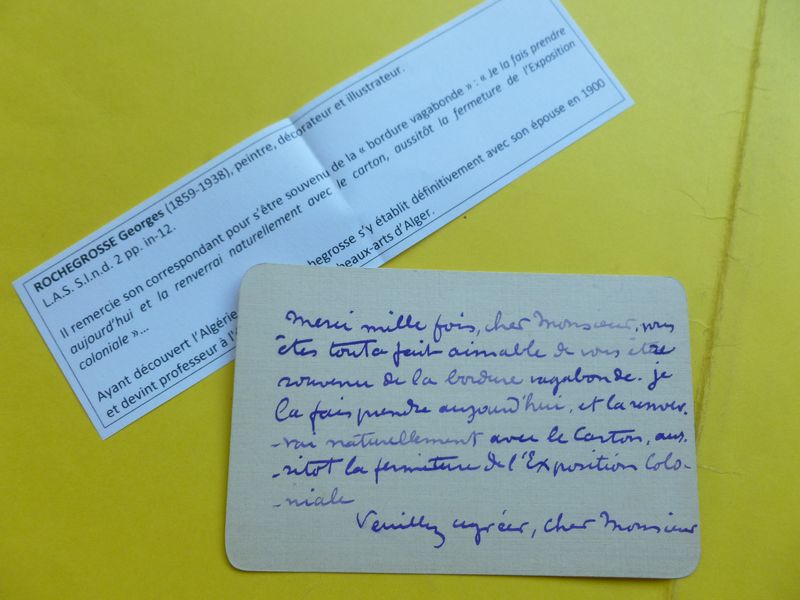 ROCHEGROSSE Georges (1859-1938), peintre, décorateur et illustrateur.
L.A.S. S.l.n.d. 2 pp. in-12.
Il remercie son correspondant pour s'être souvenu de la « bordure vagabonde » : « Je la fais prendre
aujourd'hui et la renverrai naturellement avec le carton, aussitôt la fermeture de l'Exposition
coloniale »...
Ayant découvert l'Algérie hegrosse s'y établit définitivement avec son épouse en 1900
et devint professeur à l' beaux-arts d'Alger.
Merci mille fois, cher Monsieur, vous
êtes tout a fait aimable de vous être
souvenu de la bordure vagabonde. je
la fais prendre aujourd'hui, et la renver-
-rai naturellement avec le Carton, aus-
-sitot la fermeture de l'Exposition Colo-
-niale
Veuillez agréer, cher Monsieur